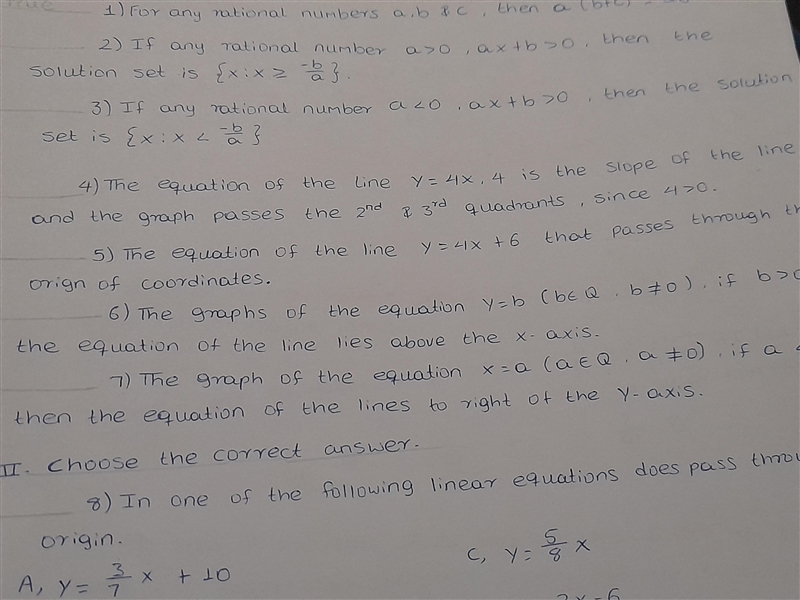 1) For any rational numbers a,b & c, then a (b+c) =
2) If any rational number a>0, ax+b>0, then the
solution set is {x:x≥ -b/a}.
3) If any rational number a<0, ax+b>0, then the solution
set is {x:x< -b/a}
4) The equation of the line y=4x, 4 is the slope of the line
and the graph passes the 2nd & 3rd quadrants, since 4>0.
5) The equation of the line y=4x+6 that passes through th
orign of coordinates.
6) The graphs of the equation y=b (b∈Q, b≠0), if b>0
the equation of the line lies above the x-axis.
7) The graph of the equation x=a (a∈Q, a≠0), if a <
then the equation of the lines to right of the y-axis.
II. Choose the correct answer.
8) In one of the following linear equations does pass throu
origin.
A, y= 3/7 x +10
C, y= 5/8 x